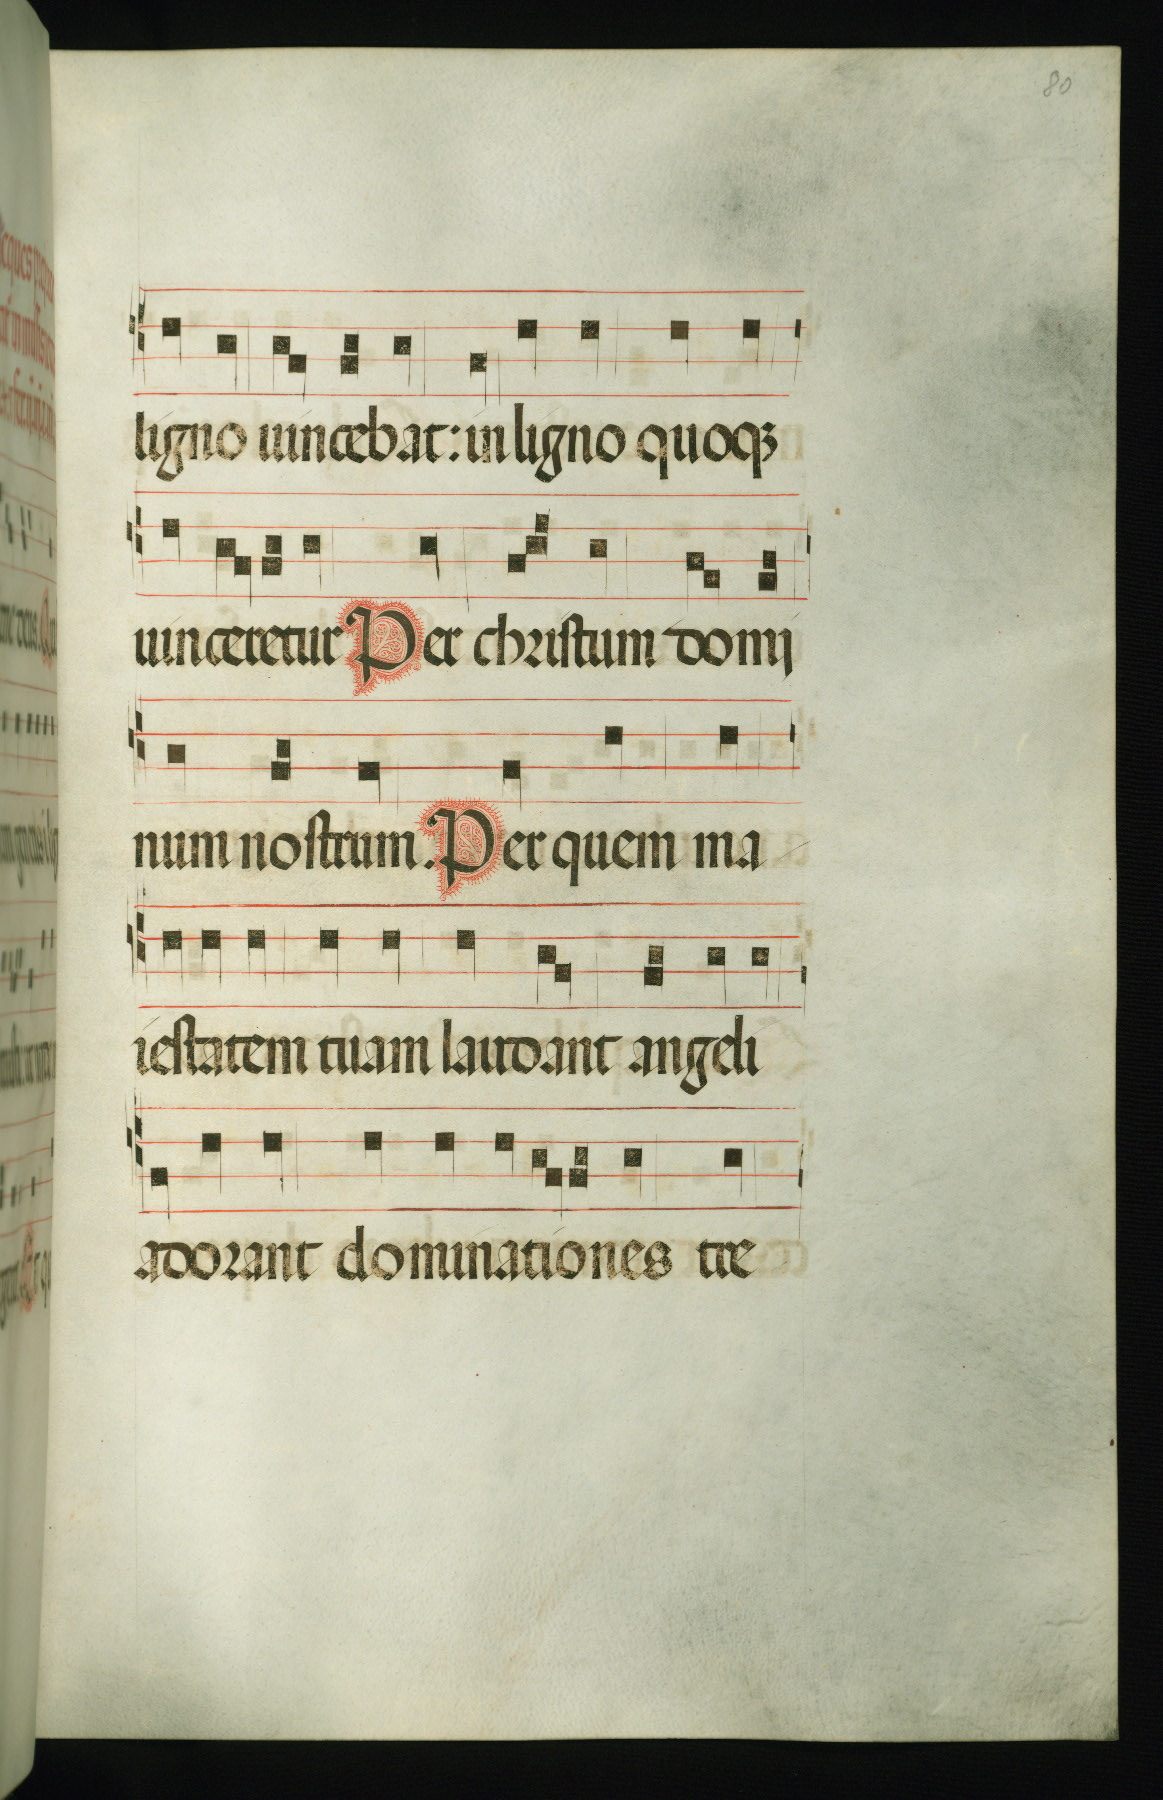 80
ligno uincebat: in ligno quoqꝫ
uinceretur Per christum domi
num nostrum. Per quem ma
iestatem tuam laudant angeli
adorant dominationes tre